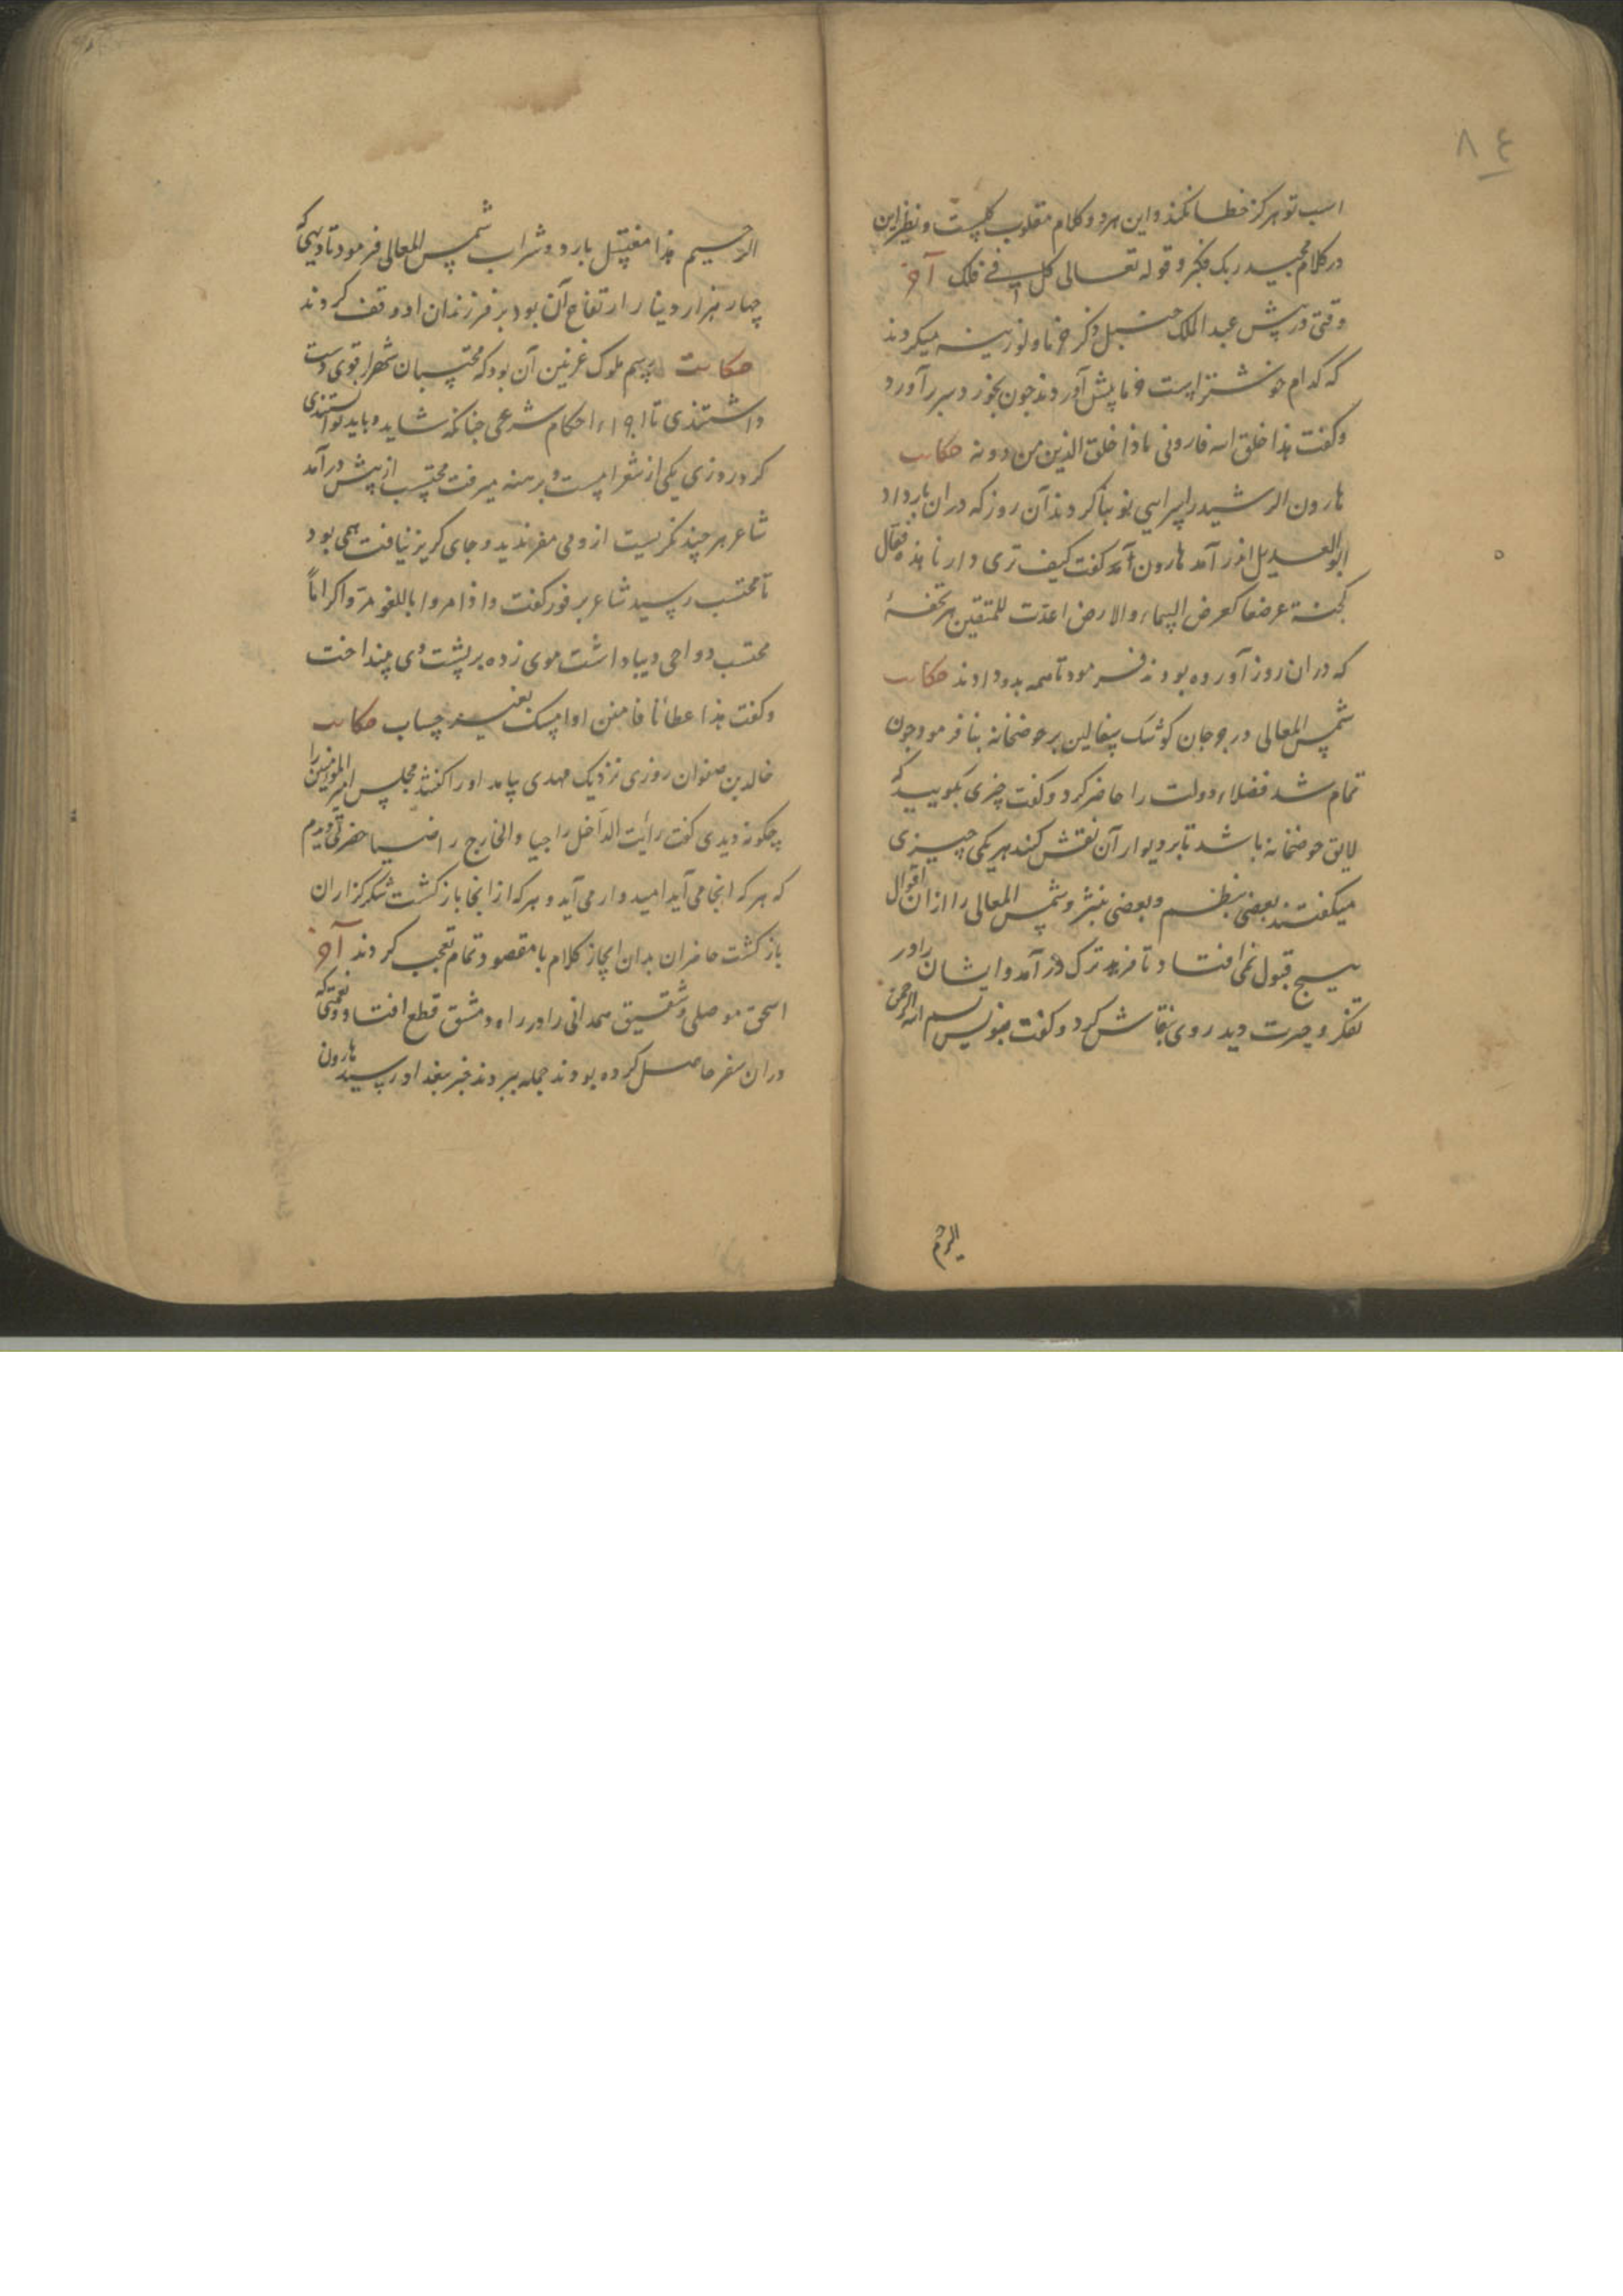 ٨٤
اسب تو هرگز خطا نکند و این هر دو کلام مقلوب کلیست و نظیر این
در کلام مجید ربک فکبر و قوله تعالی کل فی فلک آخر
وقتی در پیش عبد الملک حنبل ذکر خرما و لوزینه میکردند
که کدام خوشتر است خرما پیش آوردند جون بخورد سر برآورد
و کفت هذا خلق الله فارونی ماذا خلق الذین من دونه حکایت
هارون الرشید را سرایی نو بنا کردند آن روز که در ان بار داد
ابو العسیل اندر آمد هارون کفت کیف تری دارنا هذه فقال
کجنة عرضها کعرض السماء و الارض اعدت للمتقین هر تحفهٔ
که در ان روز آورده بودند فرمود تا همه بدو دادند حکایت
شمس المعالی در جرجان کوشک سفالین بر حوضخانه بنا فرمود جون
تمام شد فضلاء دولت را حاضر کرد و کفت چیزی بکویید که
لایق حوضخانه باشد تا بر دیوار آن نقش کنند هر یکی چیزی
میکفتند بعضی بنظم و بعضی بنثر و شمس المعالی را از ان اقوال
هیچ قبول نمی افتاد تا فرزند ترک در آمد و ایشان را در
تفکر و حیرت دید روی بنقاش کرد و کفت بنویس بسم الله الرحمن
الرحیم
الرحیم هذا مغتسل بارد و شراب شمس المعالی فرمود تا دیهی که
چهار هزار دینار ارتفاع آن بود بر فرزندان او وقف کردند
حکایت رسم ملوک غزنین آن بود که محتسبان شهر را قوی دست
داشتندی تا اجراء احکام شرعی جنانکه شاید و باید توانستندی
کرد روزی یکی از شعرا مست و برهنه میرفت محتسب از پیش درآمد
شاعر هر چند نکریست از وی مفر ندید و جای کریز نیافت همی بود
تا محتسب رسید شاعر بر فور کفت و اذا مروا باللغو مروا کراماً
محتسب دواجی دیبا داشت موی زده بر پشت وی انداخت
و کفت هذا عطائنا فامنن او امسک بغیر حساب حکایت
خالد بن صفوان روزی نزدیک مهدی بیامد او را کفتند مجلس امیر المؤمنین را
چکونه دیدی کفت رأیت الداخل راجیا و الخارج راضیا حضرتی دیدم
که هر که انجا می آید امیدوار می آید و هر که از انجا باز کشت شکر کزاران
باز کشت حاضران بدان ایجاز کلام با مقصود تمام تعجب کردند آخر
اسحق موصلی و شقیق همدانی را در راه دمشق قطع افتاد و نعمتی که
در ان سفر حاصل کرده بودند جمله ببردند خبر ببغداد رسید هارون